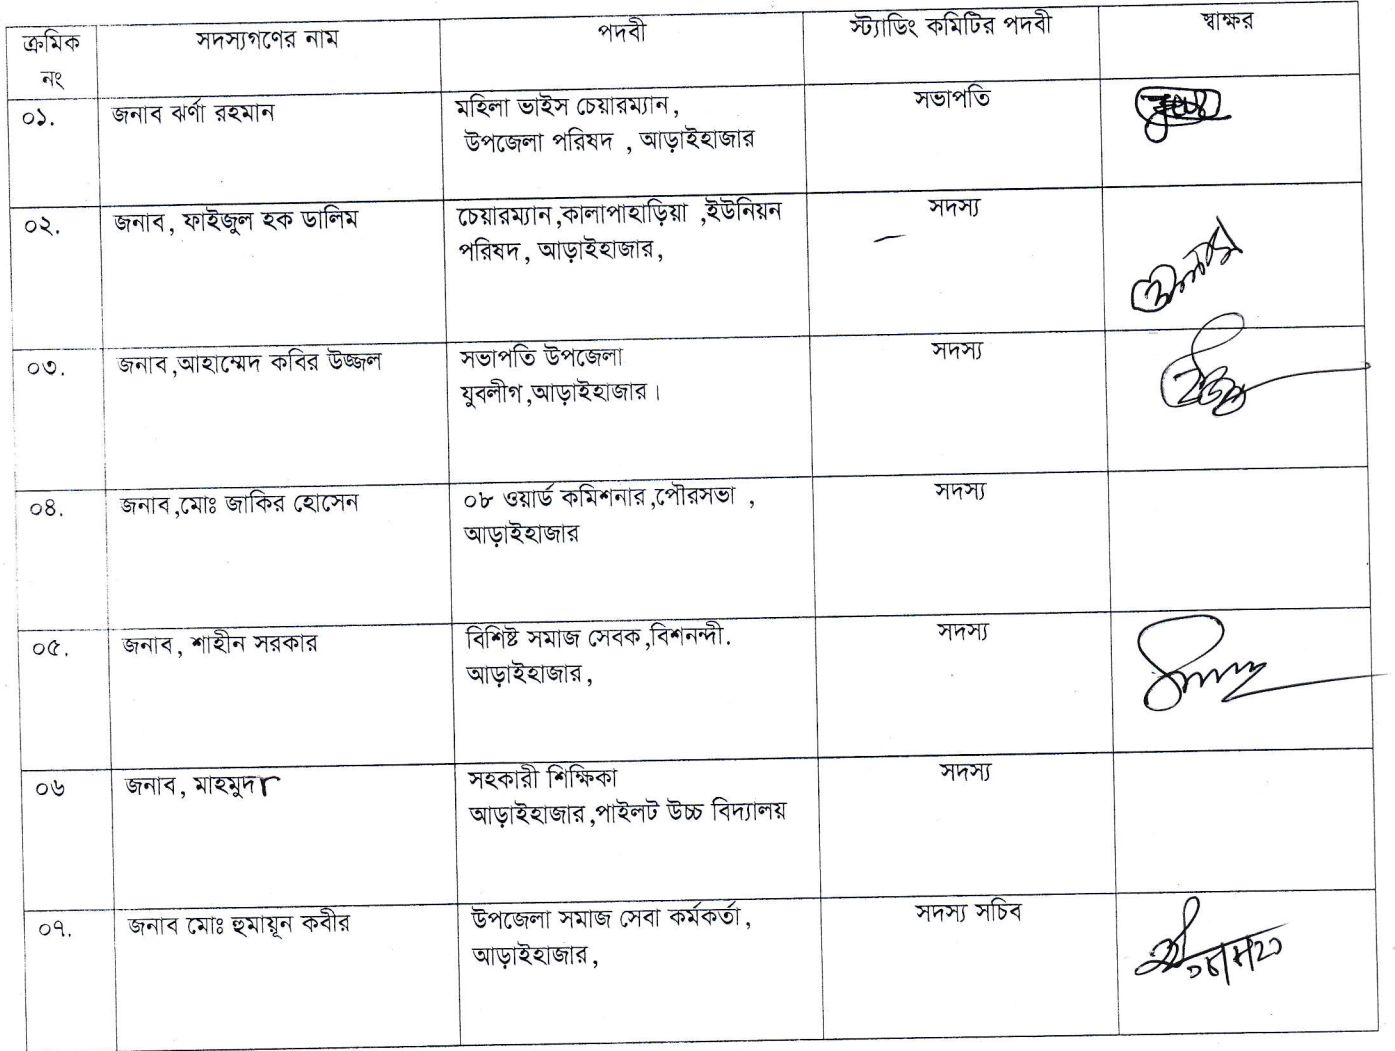 ক্রমিক নং সদস্যগণের নাম পদবী স্ট্যাডিং কমিটির পদবী স্বাক্ষর
০১. জনাব ঝর্ণা রহমান মহিলা ভাইস চেয়ারম্যান, সভাপতি
উপজেলা পরিষদ , আড়াইহাজার
০২. জনাব, ফাইজুল হক ডালিম চেয়ারম্যান,কালাপাহাড়িয়া ,ইউনিয়ন সদস্য
পরিষদ, আড়াইহাজার,
০৩. জনাব,আহাম্মেদ কবির উজ্জল সভাপতি উপজেলা সদস্য
যুবলীগ,আড়াইহাজার।
০৪. জনাব,মোঃ জাকির হোসেন ০৮ ওয়ার্ড কমিশনার,পৌরসভা , সদস্য
আড়াইহাজার
০৫. জনাব, শাহীন সরকার বিশিষ্ট সমাজ সেবক,বিশনন্দী. সদস্য
আড়াইহাজার,
০৬ জনাব, মাহমুদা সহকারী শিক্ষিকা সদস্য
আড়াইহাজার,পাইলট উচ্চ বিদ্যালয়
০৭. জনাব মোঃ হুমায়ূন কবীর উপজেলা সমাজ সেবা কর্মকর্তা, সদস্য সচিব
আড়াইহাজার,